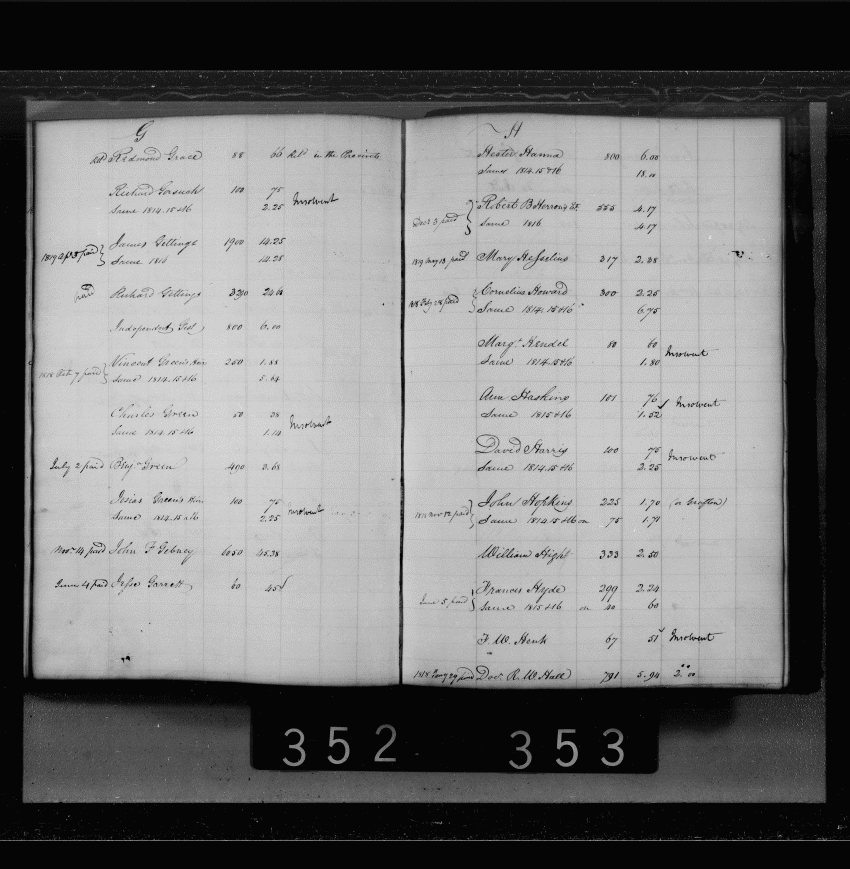 G
Redmond Grace 88 66 in the Precincts
Richard Gorsuch 100 75
Same 1814.15 & 16 2.25 Insolvent
James Gittings 1900 14.25
1819 paid
Same 1816 14.25
paid Richard Gittings 24
Independent 800 6.00
Vincent Green's Heirs 250 1.88
paid
Same 1814.15 & 16 5.64
Charles Green 50 38
Same 1814.15 & 16 1.14 Insolvent
July 2 paid Benj. Green 490 3.68
Josias Green's Heirs 100 75
Same 1814.15 & 16 2.25 Insolvent
Novr. 14 paid John F 6050 45.38
June 4 paid Jesse Garrett 60 45
H
Hester Hanna 800 6.00
Same 1814.15 & 16 18.00
Robert B 555 4.17
Decr 3 paid
Same 1816 4.17
1819 May 13 paid Mary Hesselius 317 2.38
Cornelius Howard 300 2.25
1818 Feby 28 paid
Same 1814.15 & 16 6.75
Margt. Hendel 80 60
Same 1814.15 & 16 1.80 Insolvent
Ann Haskins 101 76
Same 1815 & 16 1.52 Insolvent
David Harris 100 75
Same 1814.15 & 16 2.25 Insolvent
John Hopkins 225 1.70 (or Crofton)
Novr 12 paid
Same 1814.15 & 16 on 75 1.71
William Hight 333 2.50
Frances Hyde 299 2.24
June 5 paid
Same 1815 & 16 on 40 60
F. W. Henk 67 51 Insolvent
1818 paid Doct. R. W. Hall 791 5.94 2.00
352 353